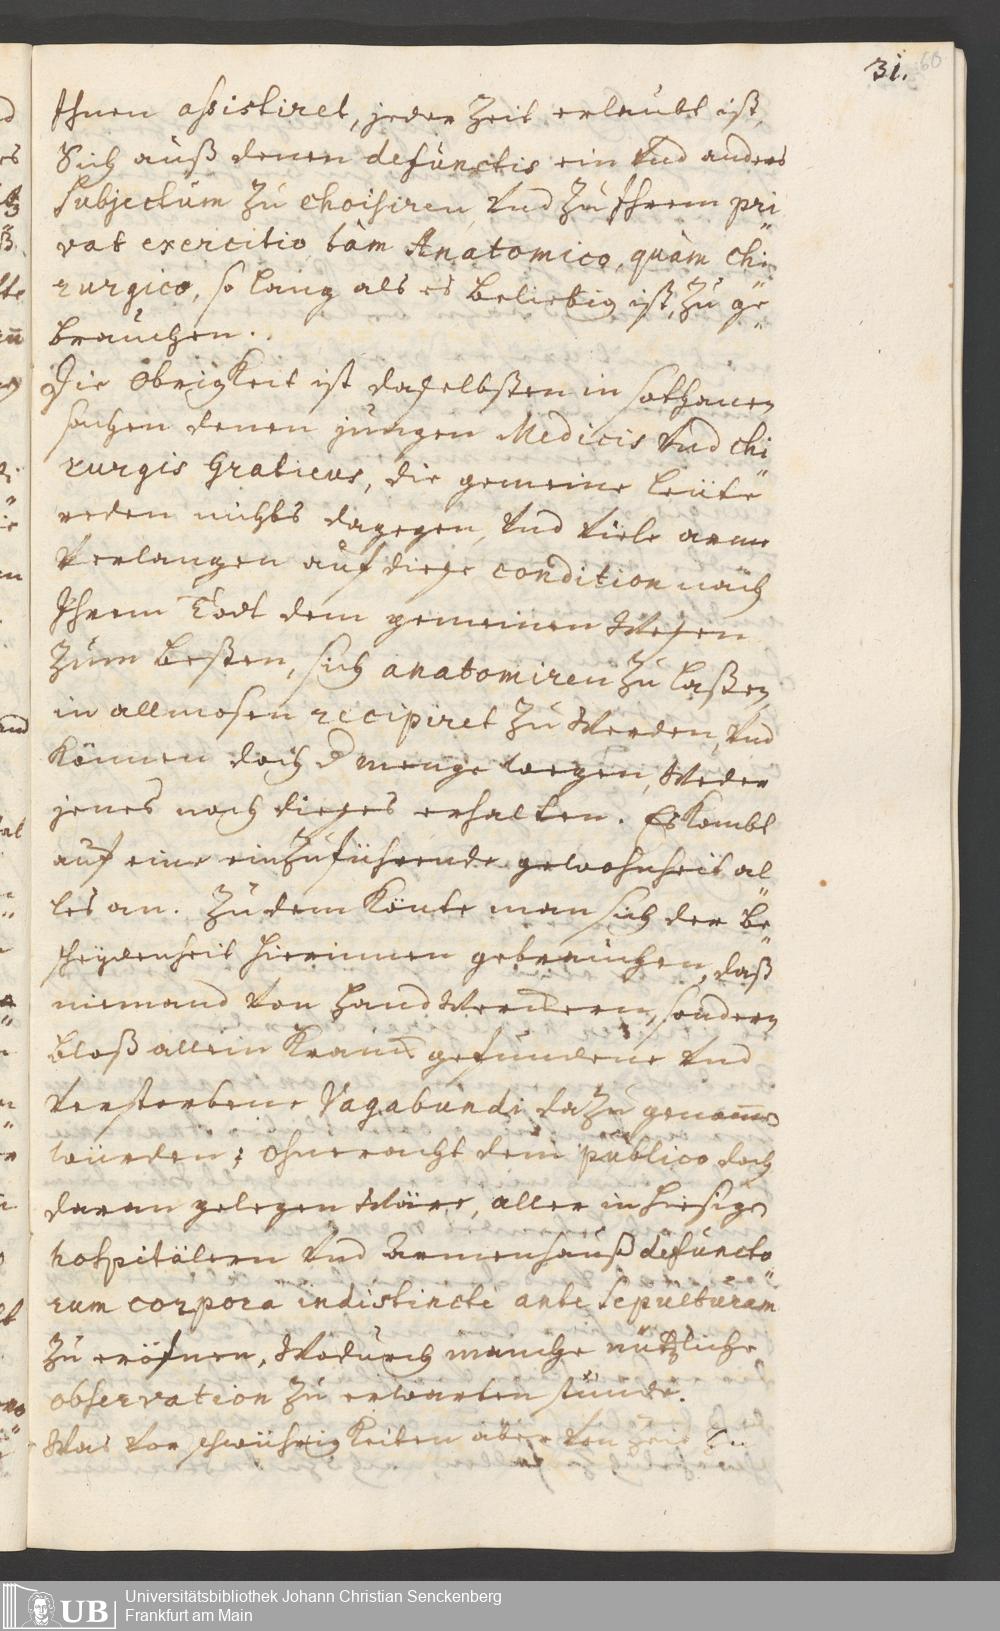 31.
60
Ihnen assistiret, jeder Zeit erlaubt ist,
Sich auß denen defunctis ein Und anders
Subjectum Zu choisiren, Und Zu Ihrem pri
vat exercitio tàm Anatomico, quàm chi
rurgico, so lang als es beliebig ist, Zu ge
brauchen.
Die Obrigkeit ist daselbsten in sothanen
sachen denen jungen Medicis Und chi
rurgis Gratieus, die gemeine leüte
reden nichts dagegen, Und Viele arme
Verlangen auf diese condition nach
Ihrem Todt dem gemeinen Wesen
Zum besten, sich anatomiren Zu laßen,
in allmosen recipiret Zu Werden, Und
Können doch d menge wegen, Weder
jenes noch dieses erhalten. Es Kombt
auf eine einZuführende gewohnheit al
les an. Zu dem Könte man sich der be
scheydenheit hierinnen gebrauchen, daß
niemand Von Handwerckern, sondern
bloß allein Kranck gefundene Und
Verstorbene Vagabundi daZu genom̅en
würden; ohneracht dem publico doch
daran gelegen Wäre, aller in hiesigen
hospitälern Und Armenhauß defuncto
rum corpora indistincte ante Sepulturam
Zu eröfnen, Wodurch manche nützliche
observation Zu erwarten stünde.
Was Vor schwührigkeiten aber Von Zeit Zu
Universitätsbibliothek Johann Christian Senckenberg
Frankfurt am Main
UB